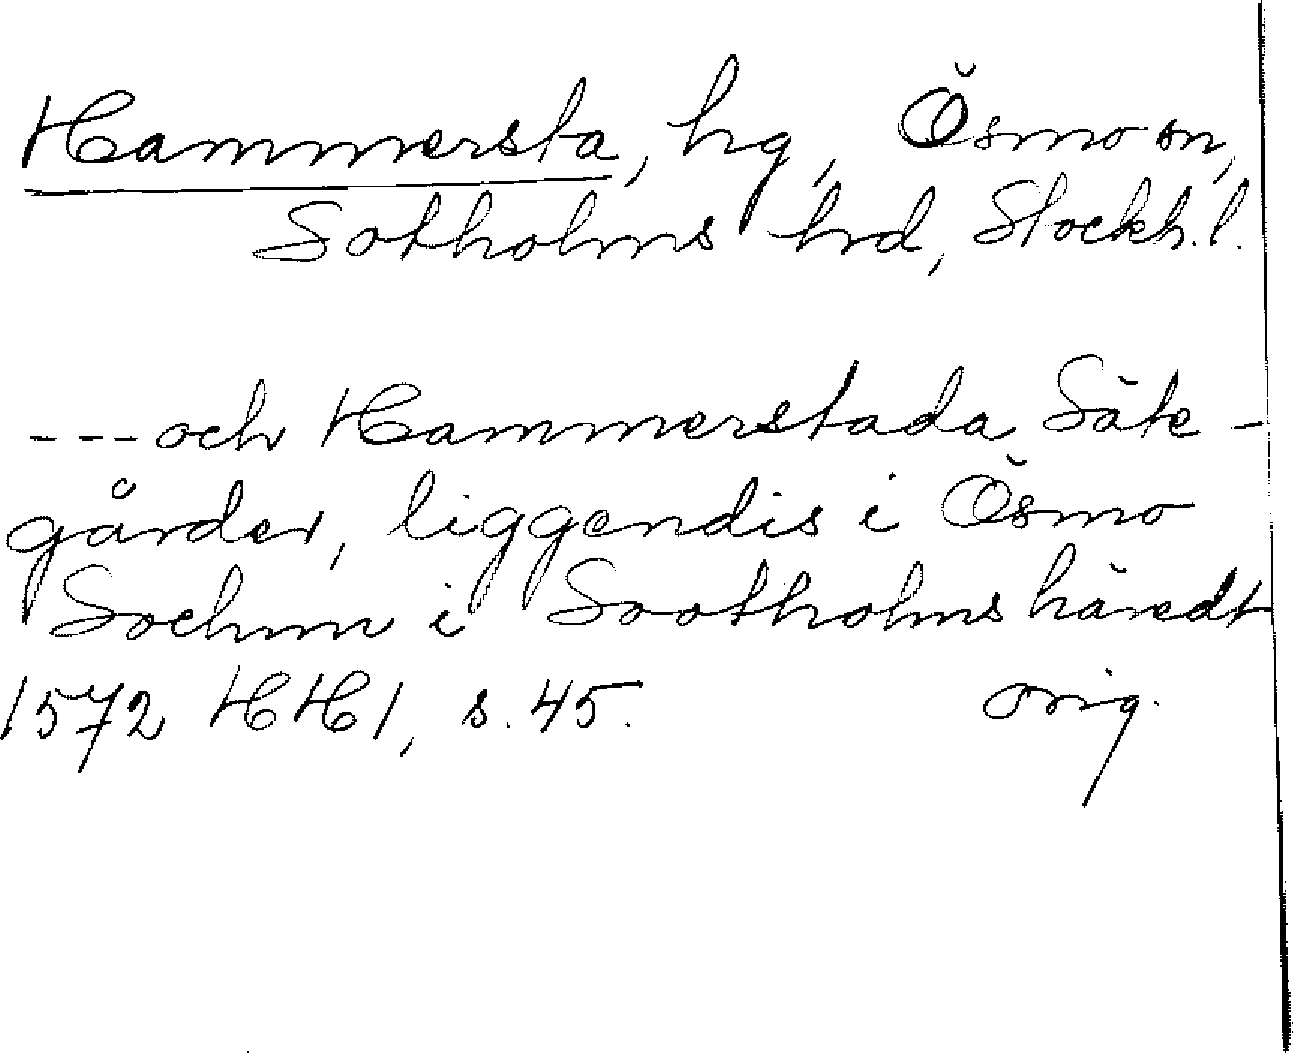 Hammersta, hg, Ösmo sn,
Sotholms hd, Stockh.l.
---och Hammerstada Säte-
gårder, liggendis i Ösmo
Sochnn i Sootholms häredt
1572 HH1, s. 45. orig.